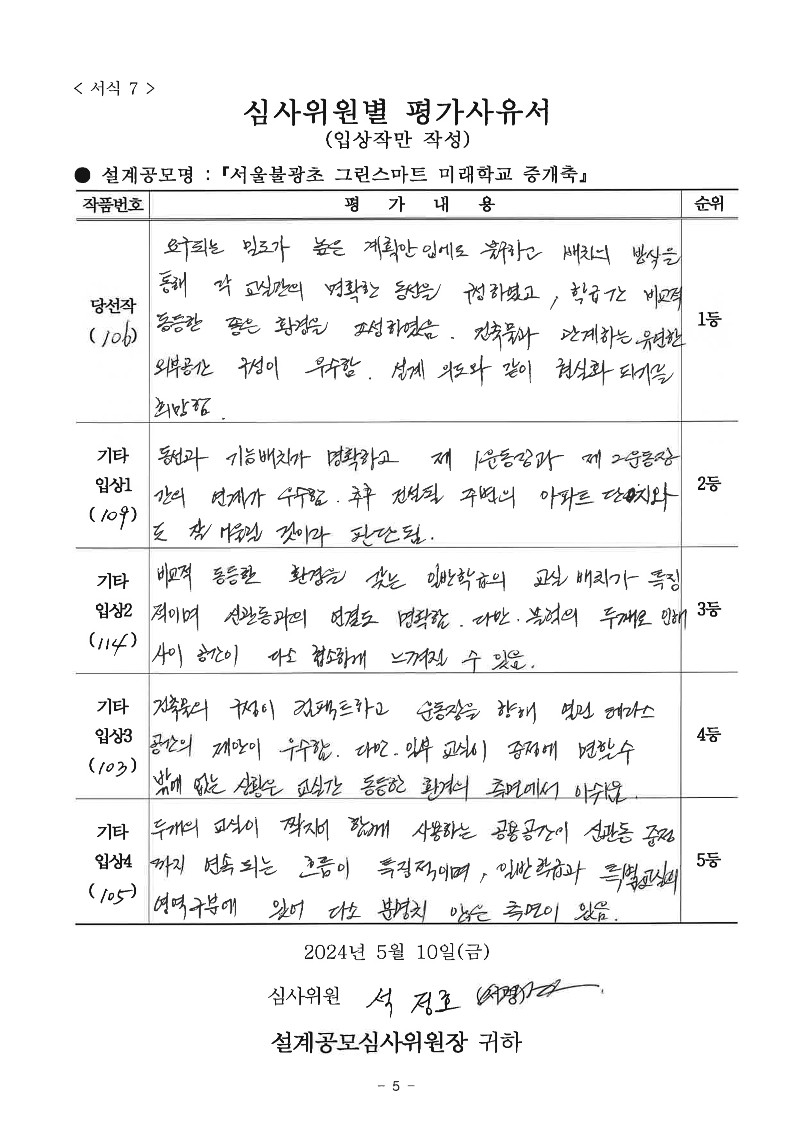 < 서식 7 >
심사위원별 평가사유서
(입상작만 작성)
● 설계공모명 : 『서울불광초 그린스마트 미래학교 증개축』
작품번호 평 가 내 용 순위
당선작
(106)
요구되는 밀도가 높은 계획안임에도 불구하고 배치의 방식을
통해 각 교실간의 명확한 동선을 구성하였고, 학급간 비교적
동등한 좋은 환경을 조성하였음. 건축물과 관계하는 유연한
외부공간 구성이 우수함. 설계 의도와 같이 현실화 되기를
희망함.
1등
기타
입상1
(109)
동선과 기능배치가 명확하고 제 1운동장과 제 2운동장
간의 연계가 우수함. 추후 건설될 주변의 아파트 단지와
도 잘 어울릴 것이라 판단됨.
2등
기타
입상2
(114)
비교적 동등한 환경을 갖는 일반학급의 교실 배치가 특징
적이며 신관동과의 연결도 명확함. 다만. 볼륨의 두께로 인해
사이 공간이 다소 협소하게 느껴질 수 있음.
3등
기타
입상3
(103)
건축물의 구성이 컴팩트하고 운동장을 향해 열린 테라스
공간의 제안이 우수함. 다만. 일부 교실이 중정에 면할 수
밖에 없는 상황은 교실간 동등한 환경의 측면에서 아쉬움.
4등
기타
입상4
(105)
두개의 교실이 짝지어 함께 사용하는 공용공간이 신관동 중정
까지 연속되는 흐름이 특징적이며, 일반학급과 특별교실의
영역구분에 있어 다소 분명치 않은 측면이 있음.
5등
2024년 5월 10일(금)
심사위원 석 정호
설계공모심사위원장 귀하
- 5 -